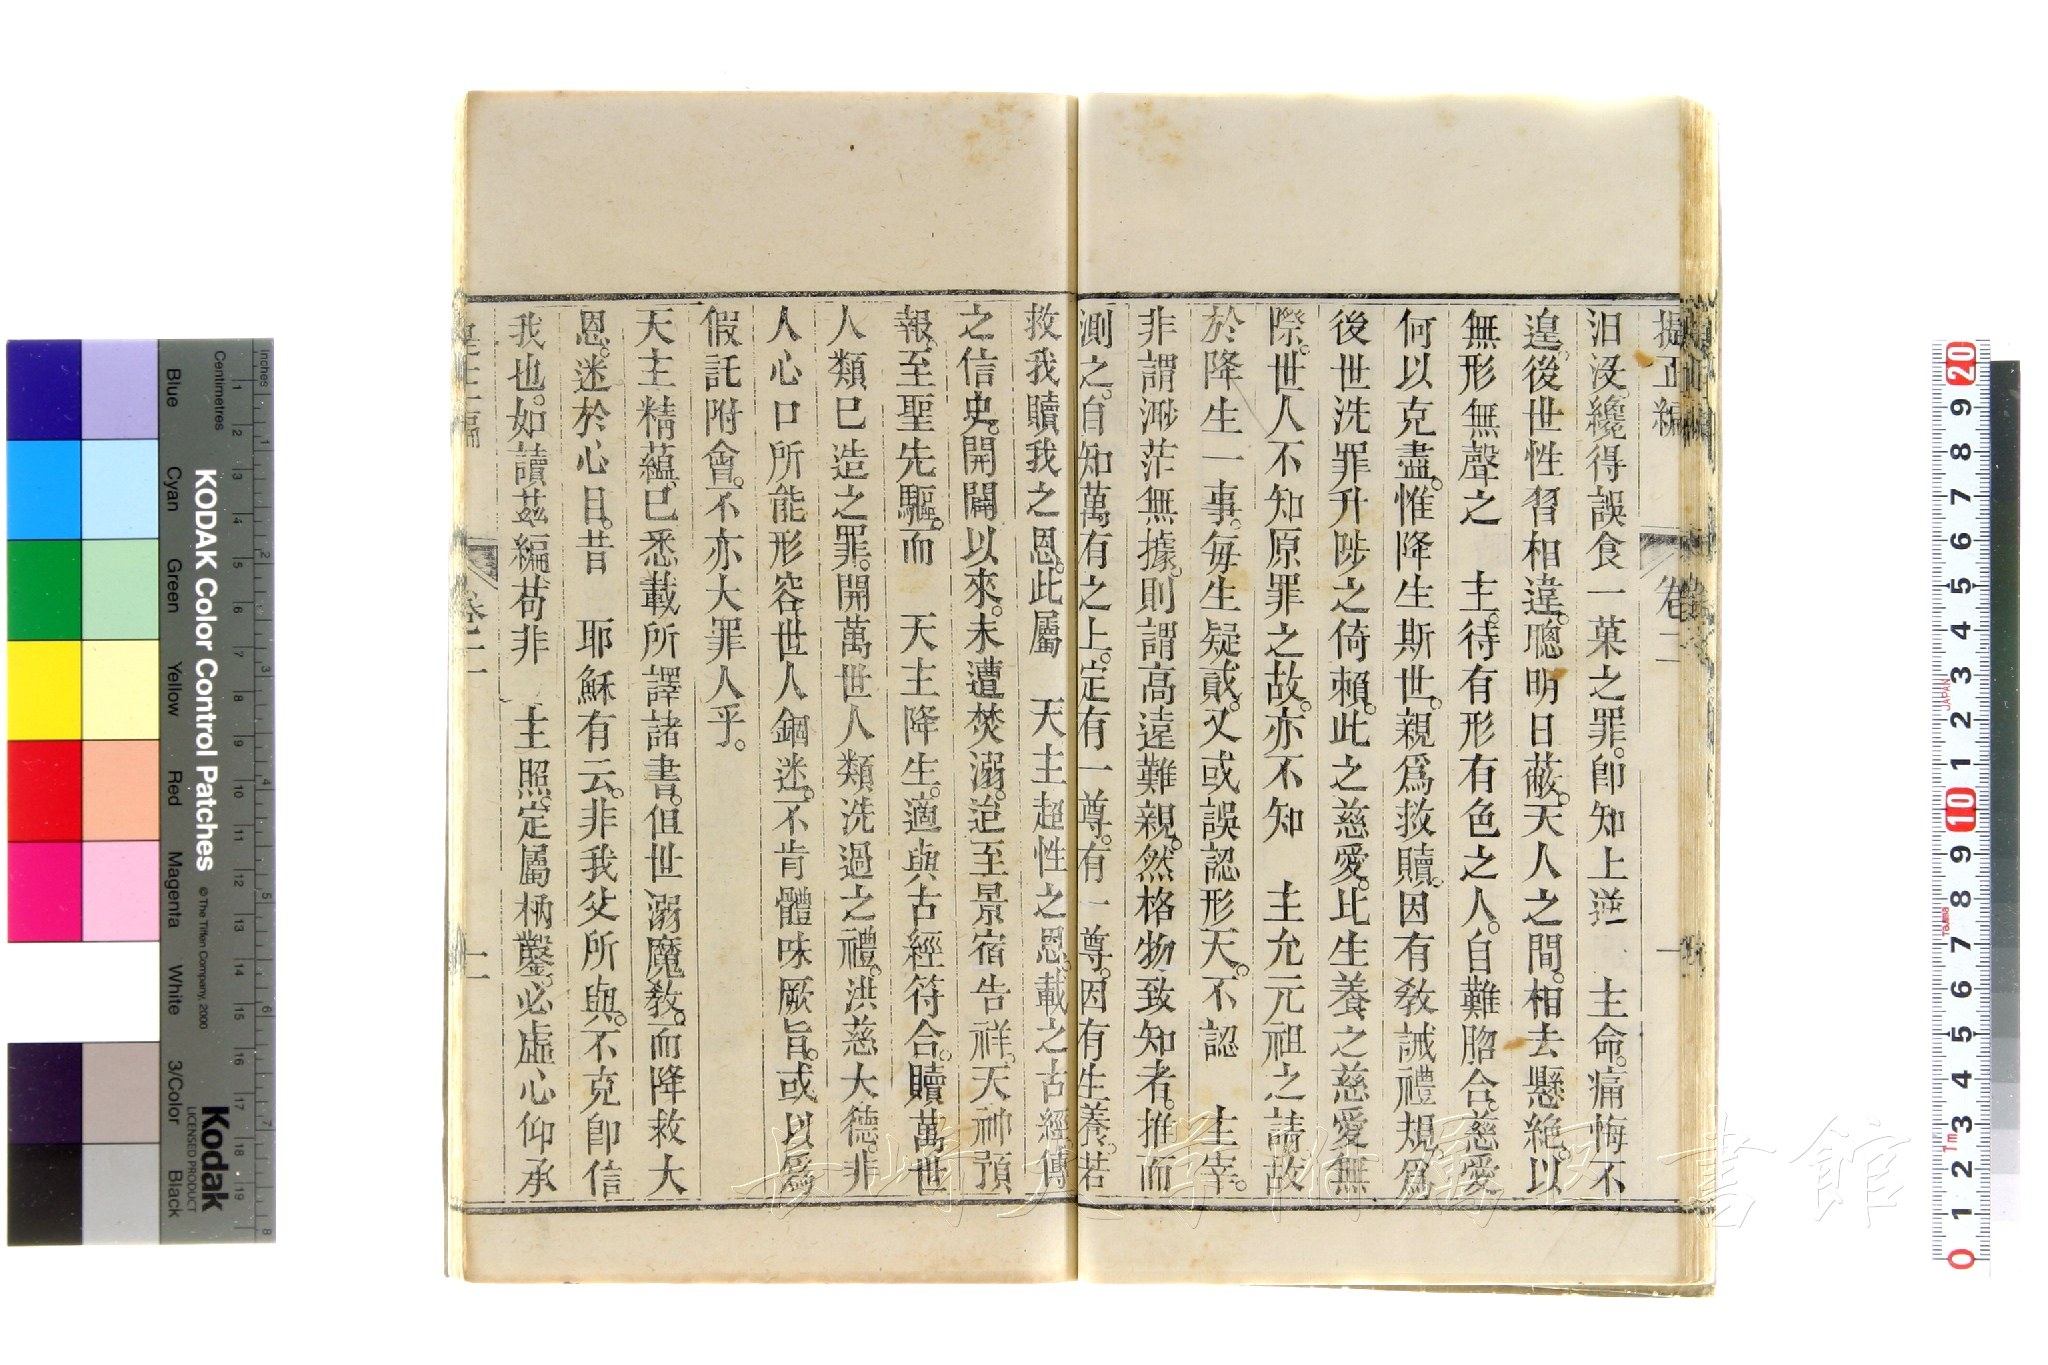 提正編　卷二　一
汨没。纔得誤食一菓之罪。卽知上逆　主命。痛悔不
遑。後世性習相違。聰明日蔽。天人之間。相去懸絶。以
無形無聲之　主。待有形有色之人。自難脗合。慈愛
何以克盡。惟降生斯世。親爲救贖。因有敎誡禮規。爲
後世洗罪升陟之倚賴。此之慈愛。比生養之慈愛無
際。世人不知原罪之故。亦不知　主允元祖之請。故
於降生一事。每生疑貳。又或誤認形天。不認　主宰。
非謂渺茫無據。則謂高遠難親。然格物致知者。推而
測之。自知萬有之上。定有一尊。有一尊。因有生養。若
救我贖我之恩。此屬　天主超性之恩。載之古經。傳
之信史。開闢以來。未遭焚溺。迨至景宿告祥。天神預
報。至聖先驅。而　天主降生。適與古經符合。贖萬世
人類已造之罪。開萬世人類洗過之禮。洪慈大德。非
人心口所能形容。世人錮迷。不肯體味厥旨。或以爲
假託附會。不亦大罪人乎。
天主精蘊。已悉載所譯諸書。但世溺魔敎。而降救大
恩。迷於心目。昔　耶穌有云。非我父所與。不克卽信
我也。如讀兹編。苟非　主照。定屬枘鑿。必虛心仰承
卷二　二
KODAK Color Control Patches
© The Tiffen Company, 2000
Kodak
LICENSED PRODUCT
Inches
Centimetres
Blue
Cyan
Green
Yellow
Red
Magenta
White
3/Color
Black
JAPAN
長崎大学附属図書館